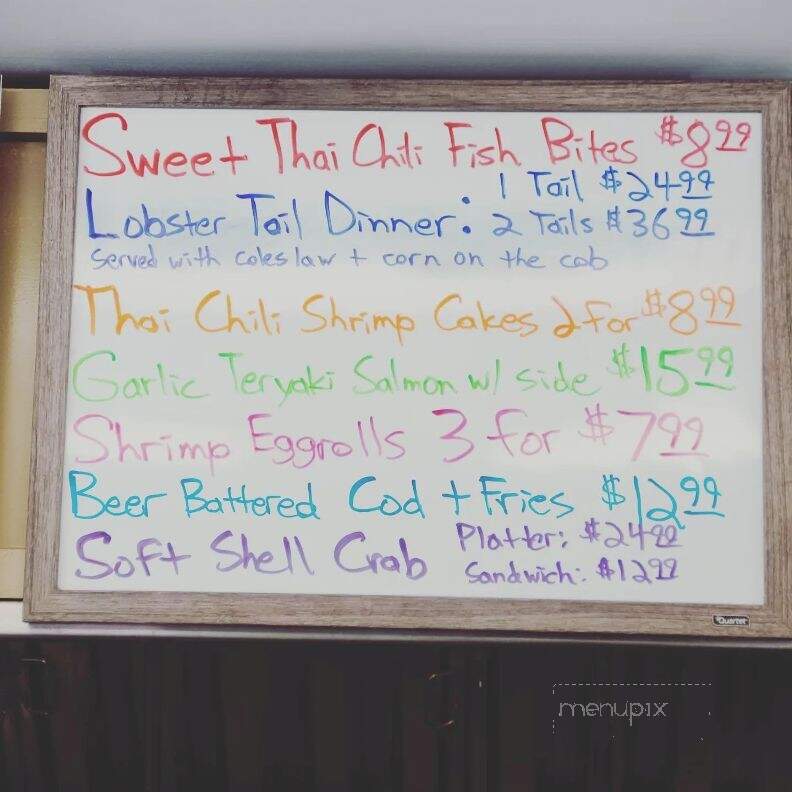 Sweet Thai Chili Fish Bites $8.99
Lobster Tail Dinner: 1 Tail $24.99
2 Tails $36.99
Served with coleslaw + corn on the cob
Thai Chili Shrimp Cakes 2 for $8.99
Garlic Teryaki Salmon w/ side $15.99
Shrimp Eggrolls 3 for $7.99
Beer Battered Cod + Fries $12.99
Soft Shell Crab Platter: $24.99
Sandwich: $12.99
Quartet
menupix